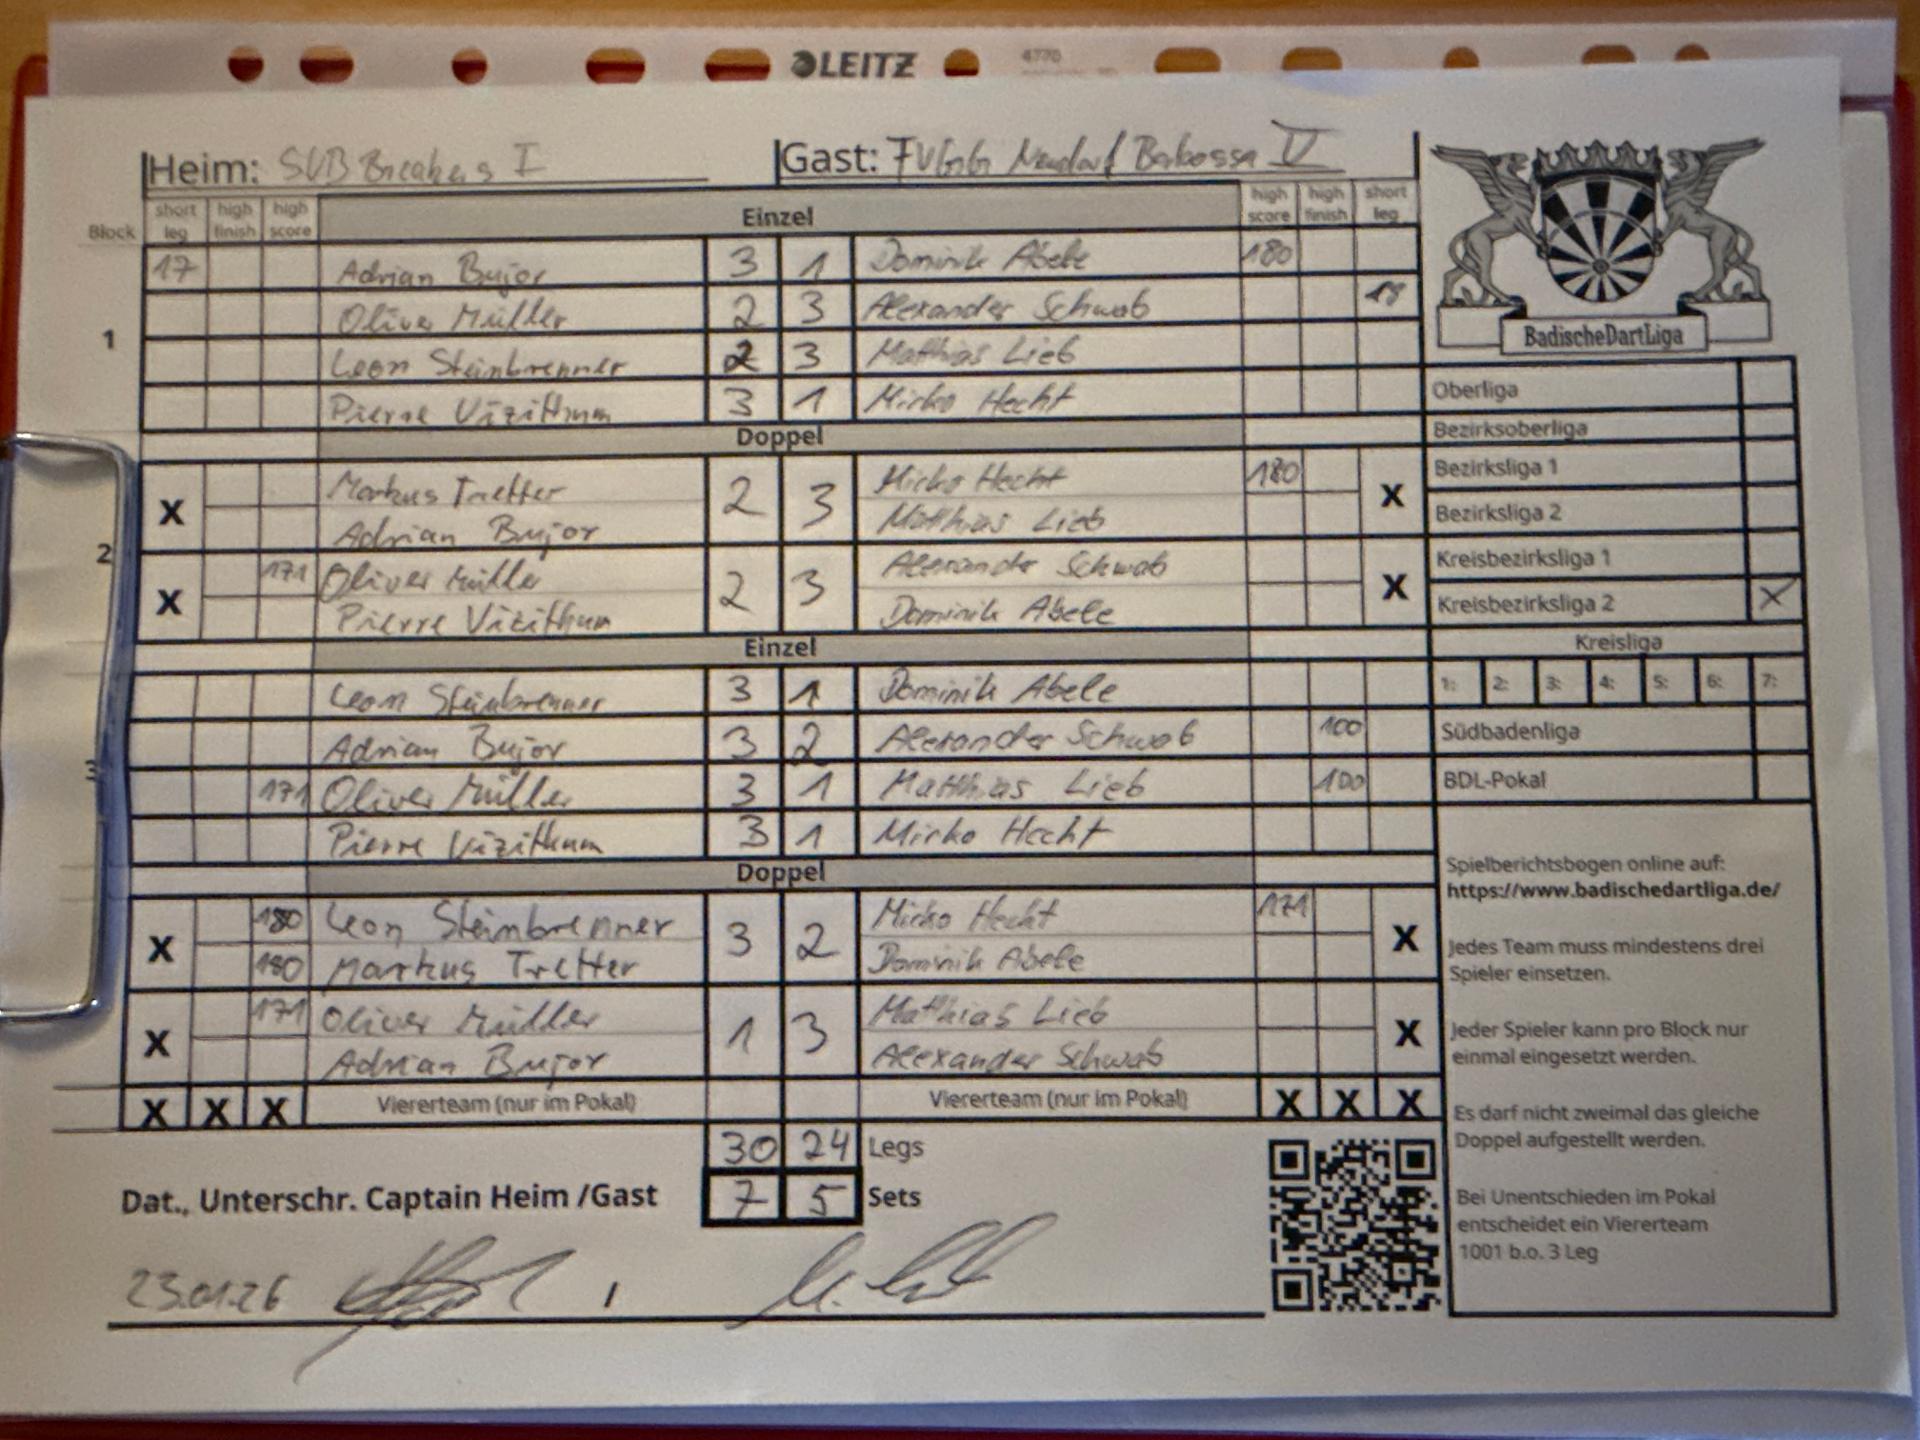 LEITZ
4770
Heim: SVB Breakers I Gast: FVgg Neudorf Barbossa V
Block short leg high finish high score Einzel high score high finish short leg
17 Adrian Bujor 3 1 Dominik Abele 180
1 Oliver Müller 2 3 Alexander Schwab 18
Leon Steinbrenner 2 3 Matthias Lieb
Pierre Vizithum 3 1 Mirko Hecht
Doppel
X Markus Tretter 2 3 Mirko Hecht 180 X
Adrian Bujor Matthias Lieb
2
X 171 Oliver Müller 2 3 Alexander Schwab X
Pierre Vizithum Dominik Abele
Einzel
Leon Steinbrenner 3 1 Dominik Abele
Adrian Bujor 3 2 Alexander Schwab 100
3 171 Oliver Müller 3 1 Matthias Lieb 100
Pierre Vizithum 3 1 Mirko Hecht
Doppel
X 180 Leon Steinbrenner 3 2 Mirko Hecht 171 X
180 Markus Tretter Dominik Abele
X 171 Oliver Müller 1 3 Matthias Lieb X
Adrian Bujor Alexander Schwab
X X X Viererteam (nur im Pokal) Viererteam (nur im Pokal) X X X
30 24 Legs
Dat., Unterschr. Captain Heim /Gast 7 5 Sets
23.01.26 /
BadischeDartLiga
Oberliga
Bezirksoberliga
Bezirksliga 1
Bezirksliga 2
Kreisbezirksliga 1
Kreisbezirksliga 2 X
Kreisliga
1: 2: 3: 4: 5: 6: 7:
Südbadenliga
BDL-Pokal
Spielberichtsbogen online auf:
https://www.badischedartliga.de/
Jedes Team muss mindestens drei
Spieler einsetzen.
Jeder Spieler kann pro Block nur
einmal eingesetzt werden.
Es darf nicht zweimal das gleiche
Doppel aufgestellt werden.
Bei Unentschieden im Pokal
entscheidet ein Viererteam
1001 b.o. 3 Leg